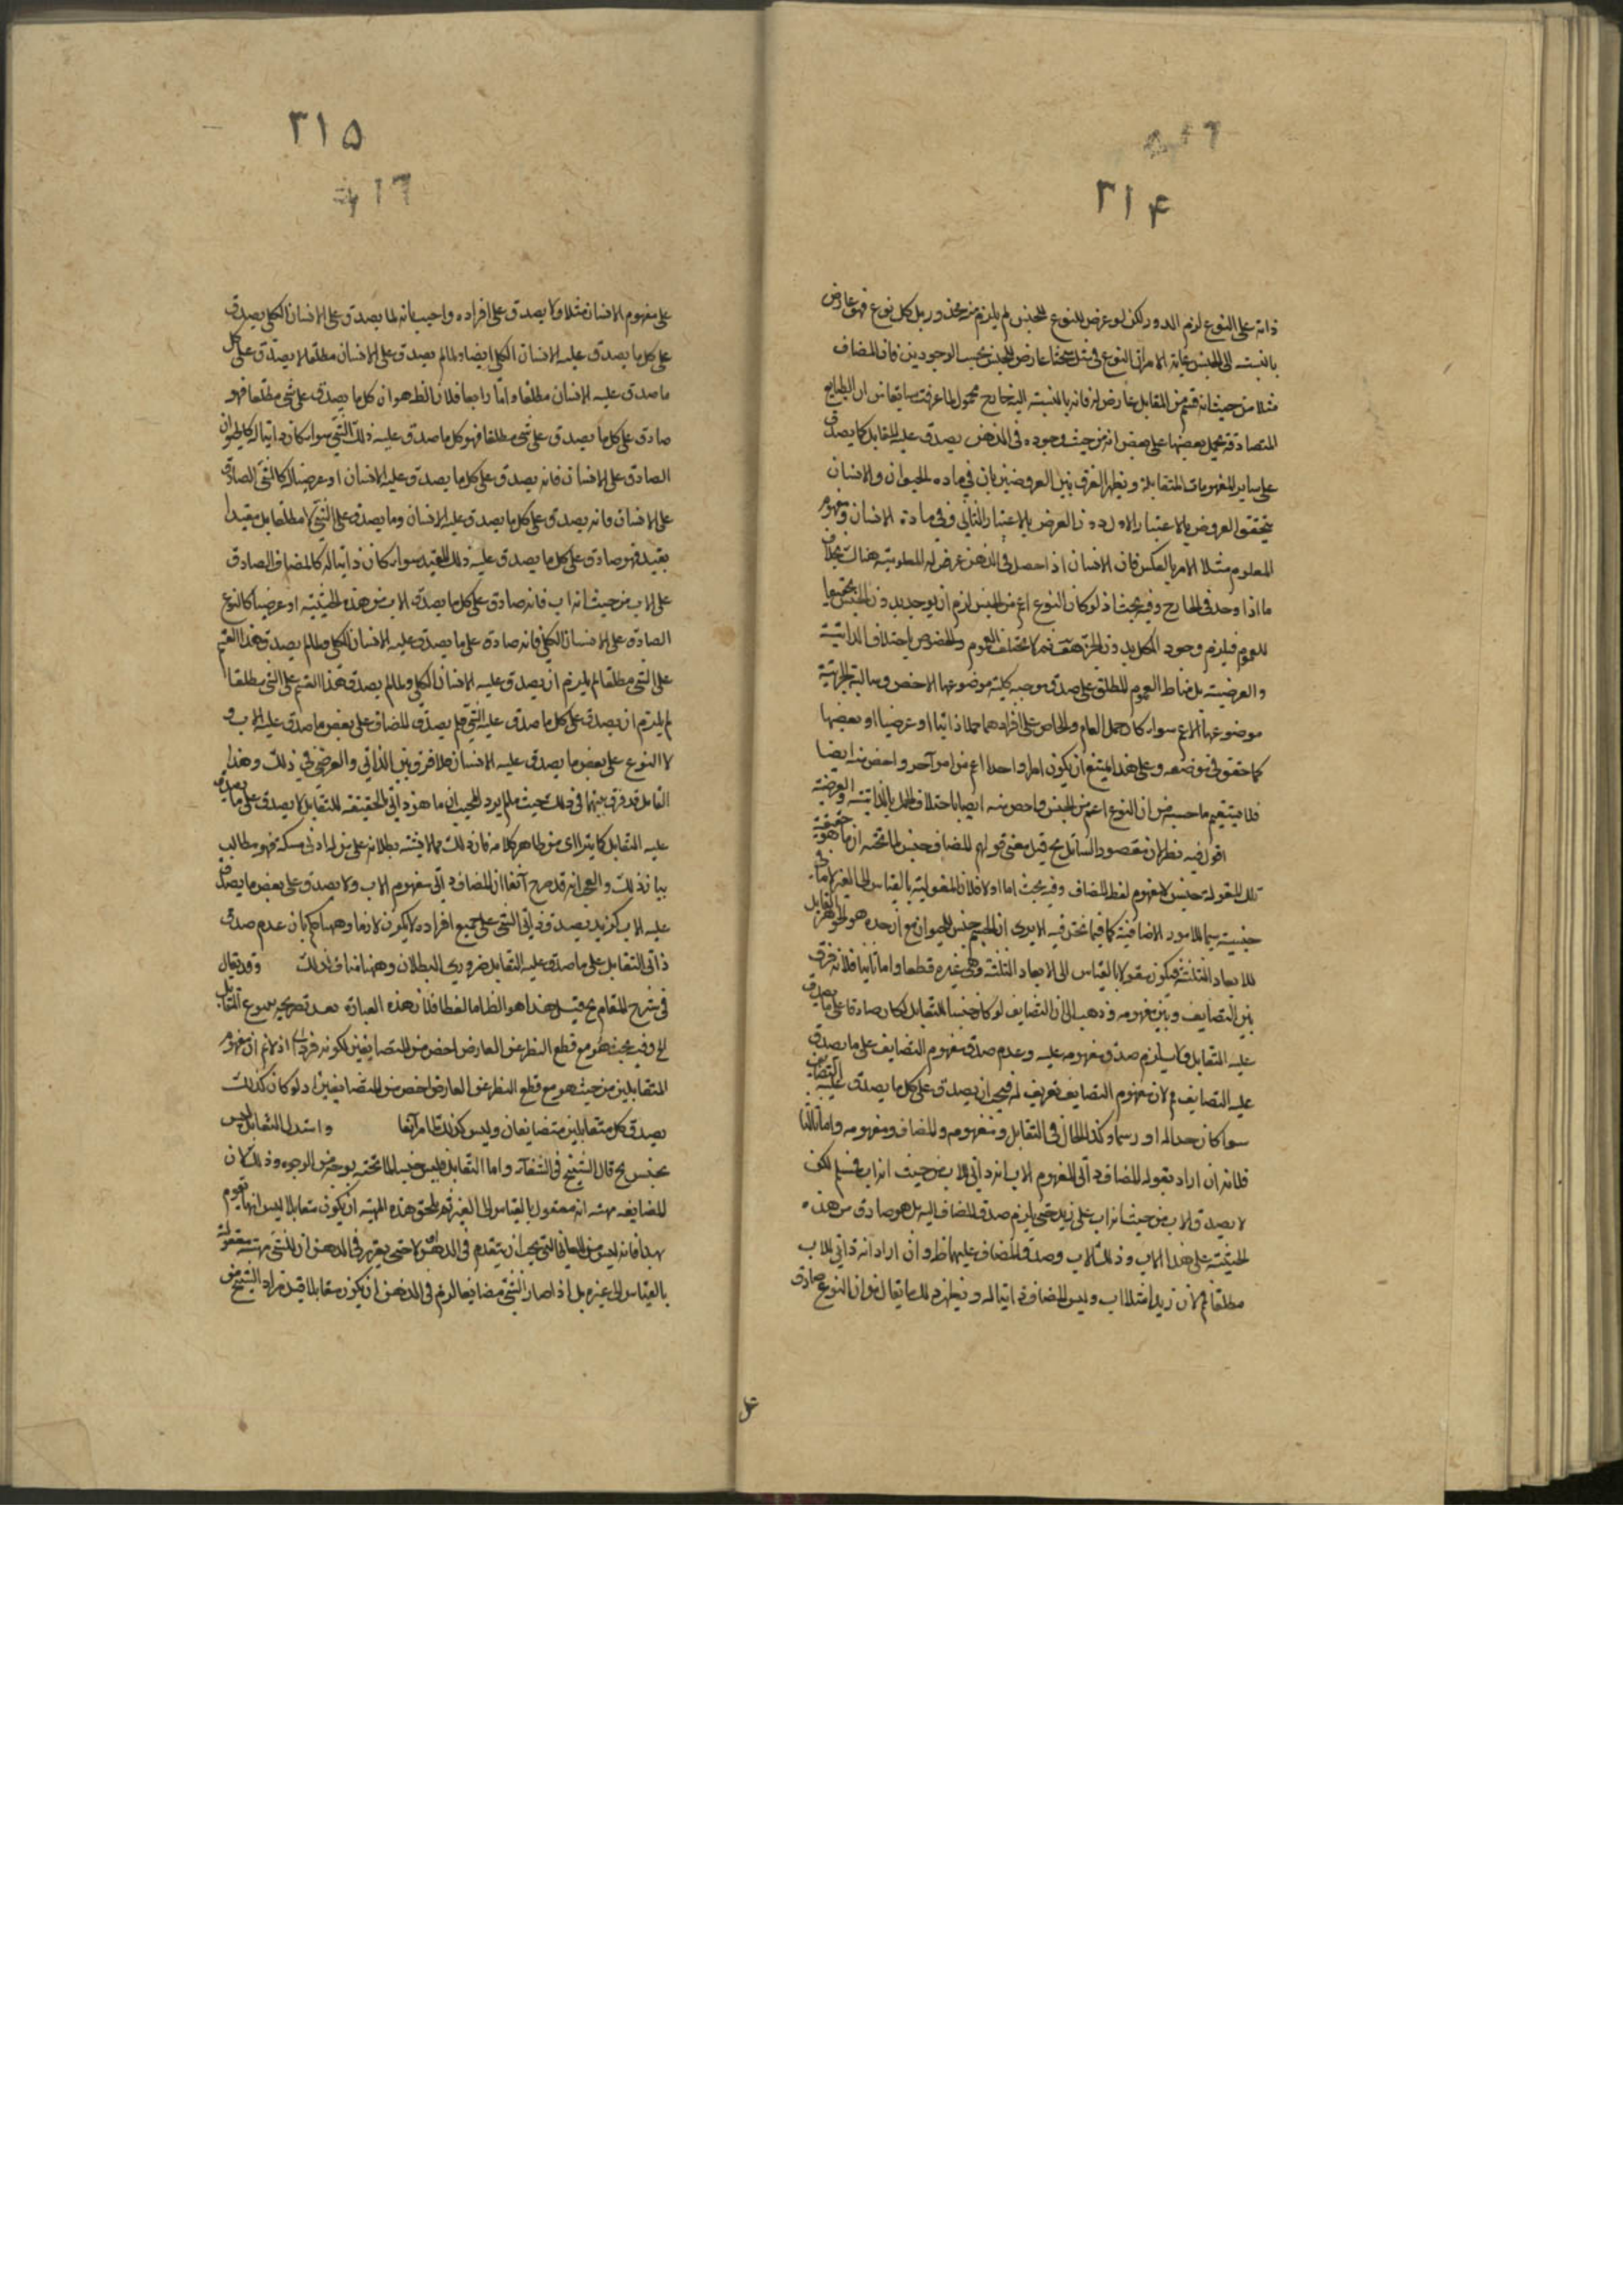 ۳۱۴
ذاته على النوع لزم الدور لكن لو عرض للنوع للجنس لم يلزم منه محذور بل كل نوع فهو عارض
بالنسبة الى الجنس غاية الامر ان النوع في عارض للجنس بحسب الوجودين فان المضاف
مثلا من حيث انه قسم من المقابل عارض له فانه بالنسبة اليه خارج محمول لما عرفت سابقا من ان الطبايع
المتصادقة يحمل بعضها على بعض انه من حيث وجوده في الذهن يصدق عليه المقابل كما يصدق
على ساير المفهومات المتقابلة ويظهر الفرق بين العروضين بان في مادة الحيوان والانسان
يتحقق العروض بالاعتبار الاول دون العرض بالاعتبار الثاني وفي مادة الانسان ومفهوم
المعلوم مثلا الامر بالعكس فان الانسان اذا حصل في الذهن عرض له المعلومية هناك بخلاف
ما اذا وجد في الخارج وفيه بحث اذ لو كان النوع اعم من الجنس لزم ان يوجد بدون الجنس تحقيقا
للعموم فيلزم وجود الكل بدون الجزء هف نعم لا يختلف العموم والخصوص باختلاف الذاتية
والعرضية بل مناط العموم المطلق على صدق موجبة كلية موضوعها الاخص وسالبة جزئية
موضوعها الاعم سواء كان حمل العام والخاص على افرادهما حملا ذاتيا او عرضيا او بعضها
كما حقق في موضعه وعلى هذا يمتنع ان يكون امر واحد اعم من امر آخر واخص منه ايضا
فلا يستقيم ما حسبه من ان النوع اعم من الجنس واخص منه ايضا باختلاف الحمل بالذاتية والعرضية
اقول فيه نظر لان مقصود السائل ح قيل معنى قولهم المضاف جنس لما تحته ان ما هو حقيقة
تلك المقولة جنس لا مفهوم لفظ المضاف وفيه بحث اما اولا فلان المقولية بالقياس الى الغير لا
جنسيته سيما للامور الاضافية كما فيما نحن فيه الا يرى ان الجسم جنس للحيوان مع ان حده هو الجوهر القابل
للابعاد الثلثة فيكون مقولا بالقياس الى الابعاد الثلثة وهي غيره قطعا واما ثانيا فلانه فرق
بين التضايف وبين مفهومه وذهب الى ان التضايف لو كان جنسا للتقابل لكان صادقا على ما يصدق
عليه المتقابل ولا يلزم صدق مفهومه عليه وعدم صدق مفهوم التضايف على ما يصدق
عليه التضايف م لان مفهوم التضايف تعريف له فيجب ان يصدق على كل ما يصدق عليه التضايف
سواء كان حدا له او رسما وكذا الحال في التقابل ومفهومه والمضاف ومفهومه واما ثالثا
فلانه ان اراد بقوله المضاف ذاتي لمفهوم الاب انه ذاتي للاب من حيث انه اب فمسلم لكن
لا يصدق الاب من حيث انه اب على زيد حتى يلزم صدق المضاف اليه بل هو صادق من هذه
الحيثية على هذا الاب وذلك الاب وصدق المضاف عليهما ظ وان اراد انه ذاتي للاب
مطلقا فم لان زيدا مثلا اب وليس المضاف ذاتيا له ونظيره ما يقال من ان النوع صادق
عل
۳۱۵
على مفهوم الانسان مثلا ولا يصدق على افراده واجيب بانه لما يصدق على الانسان الكلي يصدق
على كل ما يصدق عليه الانسان الكلي ايضا ولما لم يصدق على الانسان مطلقا لا يصدق على كل
ما صدق عليه الانسان مطلقا واما رابعا فلان الظ هو ان كل ما يصدق على شئ مطلقا فهو
صادق على كل ما يصدق على شئ مطلقا فهو كل ما صدق عليه ذلك الشئ سواء كان ذاتيا له كالحيوان
الصادق على الانسان فانه يصدق على كل ما يصدق عليه الانسان او عرضيا له كالشئ الصادق
على الانسان فانه يصدق على كل ما يصدق عليه الانسان وما يصدق على الشئ لا مطلقا بل مقيدا
بقيد فهو صادق على كل ما يصدق عليه ذلك المقيد سواء كان ذاتيا له كالمضاف الصادق
على الاب من حيث انه اب فانه صادق على كل ما يصدق الاب من هذه الحيثية او عرضيا كالنوع
الصادق على الانسان الكلي فانه صادق على ما يصدق عليه الانسان الكلي ولما لم يصدق هذا القسم
على الشئ مطلقا لم يلزم ان يصدق عليه الانسان الكلي ولما لم يصدق هذا القسم على الشئ مطلقا
لم يلزم ان يصدق على كل ما صدق عليه الشئ فلم يصدق المضاف على بعض ما صدق عليه الاب و
لا النوع على بعض ما يصدق عليه الانسان فلا فرق بين الذاتي والعرضي في ذلك وهذا
القائل قد فرق بينهما في ذلك حيث لم يرد المجيب ان ما هو ذاتي لحقيقة التقابل لا يصدق على ما يصدق
عليه التقابل كما يتراأى من ظاهر كلامه فان ذلك مما لا يشتبه بطلانه على من له ادنى مسكة فهو مطالب
ببيان ذلك والعجب انه قد صرح آنفا ان المضاف ذاتي مفهوم الاب ولا يصدق على بعض ما يصدق
عليه الاب كزيد يصدق ذاتي الشئ على جميع افراده لا يكون لازما وههنا حكم بان عدم صدق
ذاتي التقابل على ما صدق عليه التقابل ضروري البطلان وههنا مناف لذلك وقد يقال
في شرح المقام ح قيل هذا هو الظ اما لفظا فلان هذه العبارة بعد تصريحه بتنوع التقابل
الخ وفيه بحث هو مع قطع النظر عن العارض اخص من المتضايفين لكونه فردا له اذ لا نم ان مفهوم
المتقابلين من حيث هو مع قطع النظر عن العارض اخص من المتضايفين اذ لو كان كذلك
يصدق كل متقابلين متضايفان وليس كذلك لما مر آنفا واستدل التقابل ليس
بجنس ح قال الشيخ في الشفاء واما التقابل فليس جنسا لما تحته بوجه من الوجوه وذلك لان
المضايفه مهيته انه معقول بالقياس الى الغير ثم يلحق هذه المهية ان يكون متقابلا ليس انها تقوم
بهذا فانه ليس من المعاني التي يجب ان يتقدم في الذهن اولا حتى يتقرر في الذهن ان الشئ مهيته معقولة
بالقياس الى غيره بل اذا صار الشئ مضايفا لزم في الذهن ان يكون مقابلا قيل مراد الشيخ من